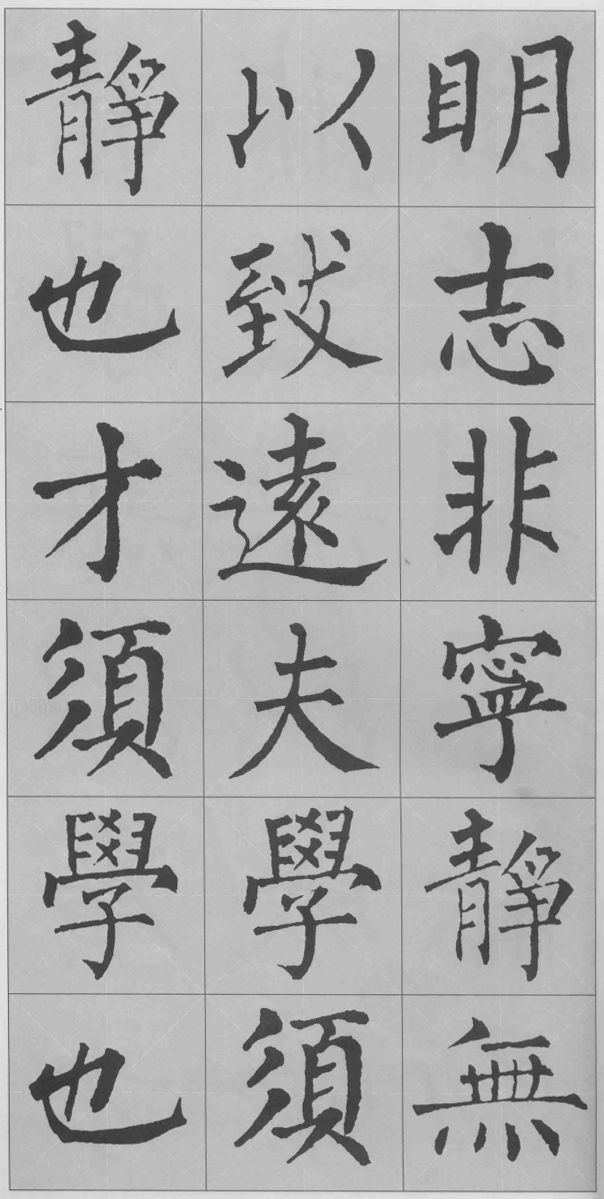 明志非寧靜無
以致遠夫學須
靜也才須學也